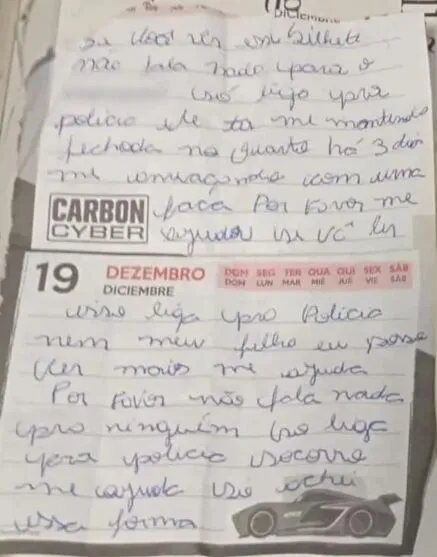 18
DICIEMBRE
se você ver esse bilhete
não fala nada para o
só liga pra
policia ele ta me mantendo
fechada no quarto há 3 dias
me ameaçando com uma
CARBON faca Por Favor me
CYBER ajudar se vc ler
19 DEZEMBRO DOM SEG TER QUA QUI SEX SÁB
DICIEMBRE DOM LUN MAR MIÉ JUE VIE SÁB
isso liga pro Policia
nem meu filho eu posso
ver mais me ajuda
Por Favor não fala nada
pro ninguém só liga
para policia socorro
me ajuda só achei
essa forma